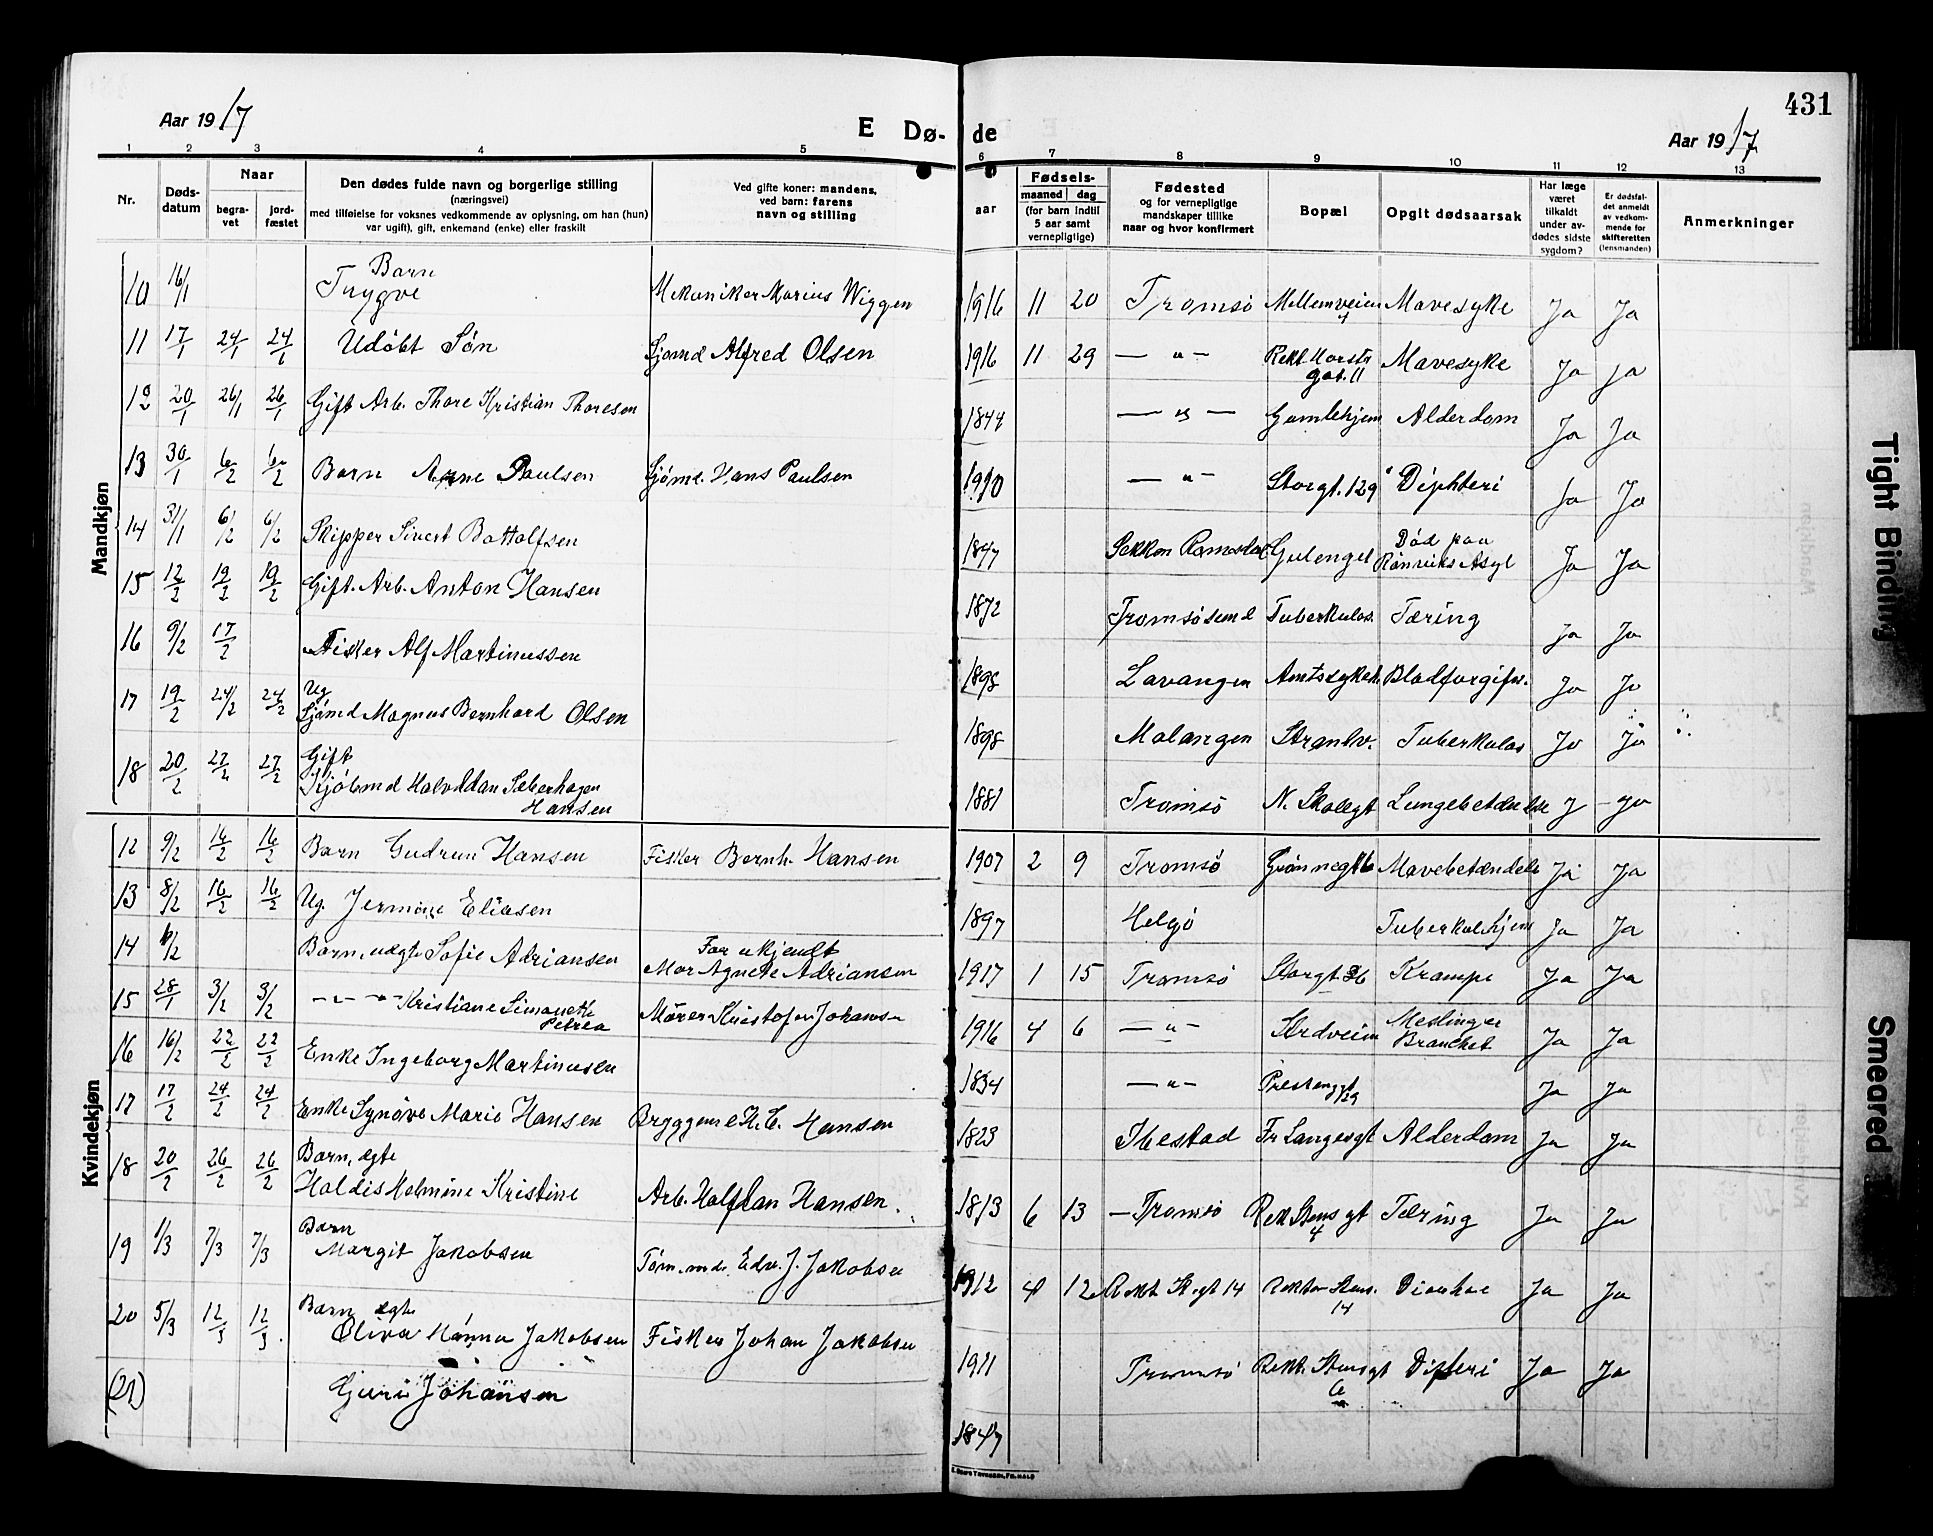 431
Aar 1917
E Dø-
de
Aar 1917
1 2 3 4 5 6 7 8 9 10 11 12 13
Nr.
Døds-
datum
Naar
begra-
vet
jord-
fæstet
Den dødes fulde navn og borgerlige stilling
(næringsvei)
med tilføielse for voksnes vedkommende av oplysning, om han (hun)
var ugift), gift, enkemand (enke) eller fraskilt
Ved gifte koner: mandens,
ved barn: farens
navn og stilling
aar
Fødsels-
maaned dag
(for barn indtil
5 aar samt
vernepligtige)
Fødested
og for vernepligtige
mandskaper tillike
naar og hvor konfirmert
Bopæl
Opgit dødsaarsak
Har læge
været
tilkaldt
under av-
dødes sidste
sygdom?
Er dødsfal-
det anmeldt
av vedkom-
mende for
skifteretten
(lensmanden)
Anmerkninger
Mandkjøn
10 16/1 Barn
Trygve Mekaniker Marius Wiggen 1916 11 20 Tromsö Mellemveien Mavesyke Ja Ja
11 17/1 24/1 24/1 Udöbt Sön Sjomd Alfred Olsen 1916 11 29 — " — Rekt. Horsts
gat. 11 Mavesyke Ja Ja
12 20/1 26/1 26/1 Gift Arb. Thore Kristian Thoresen 1844 — " — Gamlehjem Alderdom Ja Ja
13 30/1 6/2 6/2 Barn Arne Paulsen Sjömd. Hans Paulsen 1910 — " — Storgt. 129 Diphteri Ja Ja
14 31/1 6/2 6/2 Skipper Sivert Bottolfsen 1847 Gulenget Död paa
Rönviks Asyl Ja Ja
15 12/2 19/2 19/2 Gift. Arb. Anton Hansen 1872 Tromsösund Tuberkulos. Tæring Ja Ja
16 9/2 17/2 Fisker Alf Martinussen 1898 Lavangen Amtssykeh. Blodforgifn. Ja Ja
17 19/2 24/2 24/2 Ug
Sjömd Magnus Bernhard Olsen 1898 Malangen Stranlv. Tuberkulos Ja Ja
18 20/2 27/2 27/2 Gift
Kjöbmd Halvddan Sæberhagen
Hansen 1881 Tromsö N. Skolegt Lungebetændelse J Ja
Kvindekjøn
12 9/2 16/2 16/2 Barn Gudrun Hansen Fisker Bernh. Hansen 1907 2 9 Tromsö Grönnegt 6 Mavebetændelse Ja Ja
13 8/2 16/2 16/2 Ug. Jermine Eliasen 1897 Helgö Tuberkulhjem Ja Ja
14 6/2 Barn, uægte Sofie Adriansen Far ukjendt
Mor Agnete Adriansen 1917 1 15 Tromsö Storgt 36 Krampe Ja Ja
15 28/1 3/2 3/2 — " — " — Kristiane Simonette
Petrea Mörer Kristofer Johansen 1916 4 6 — " — Strdveien Meslinger
Bronchet Ja Ja
16 16/2 22/2 22/2 Enke Ingeborg Martinusen 1834 — " — Prestenggt
129 Ja Ja
17 17/2 24/2 24/2 Enke Synöve Marie Hansen Bryggemd H. C. Hansen 1823 Ibestad Fr Langesgt Alderdom Ja Ja
18 20/2 26/2 26/2 Barn, ægte
Haldis Helmine Kristine Arb. Halfdan Hansen. 1813 6 13 — Tromsö Rek Stens gt
4 Tæring Ja Ja
19 1/3 7/3 7/3 Barn
Margit Jakobsen Töm.md. Edv. J. Jakobsen 1912 4 12 Rekt St.gt 14 Rektor Stens.
14 Diarrhoe Ja Ja
20 5/3 12/3 12/3 Barn ægte
Oliva Hanna Jakobsen Fisker Johan Jakobsen 1911 Tromsö Rekt. Stensgt
6 Difteri Ja Ja
(21) Guri Johansen 1847
Tight Binding
Smeared